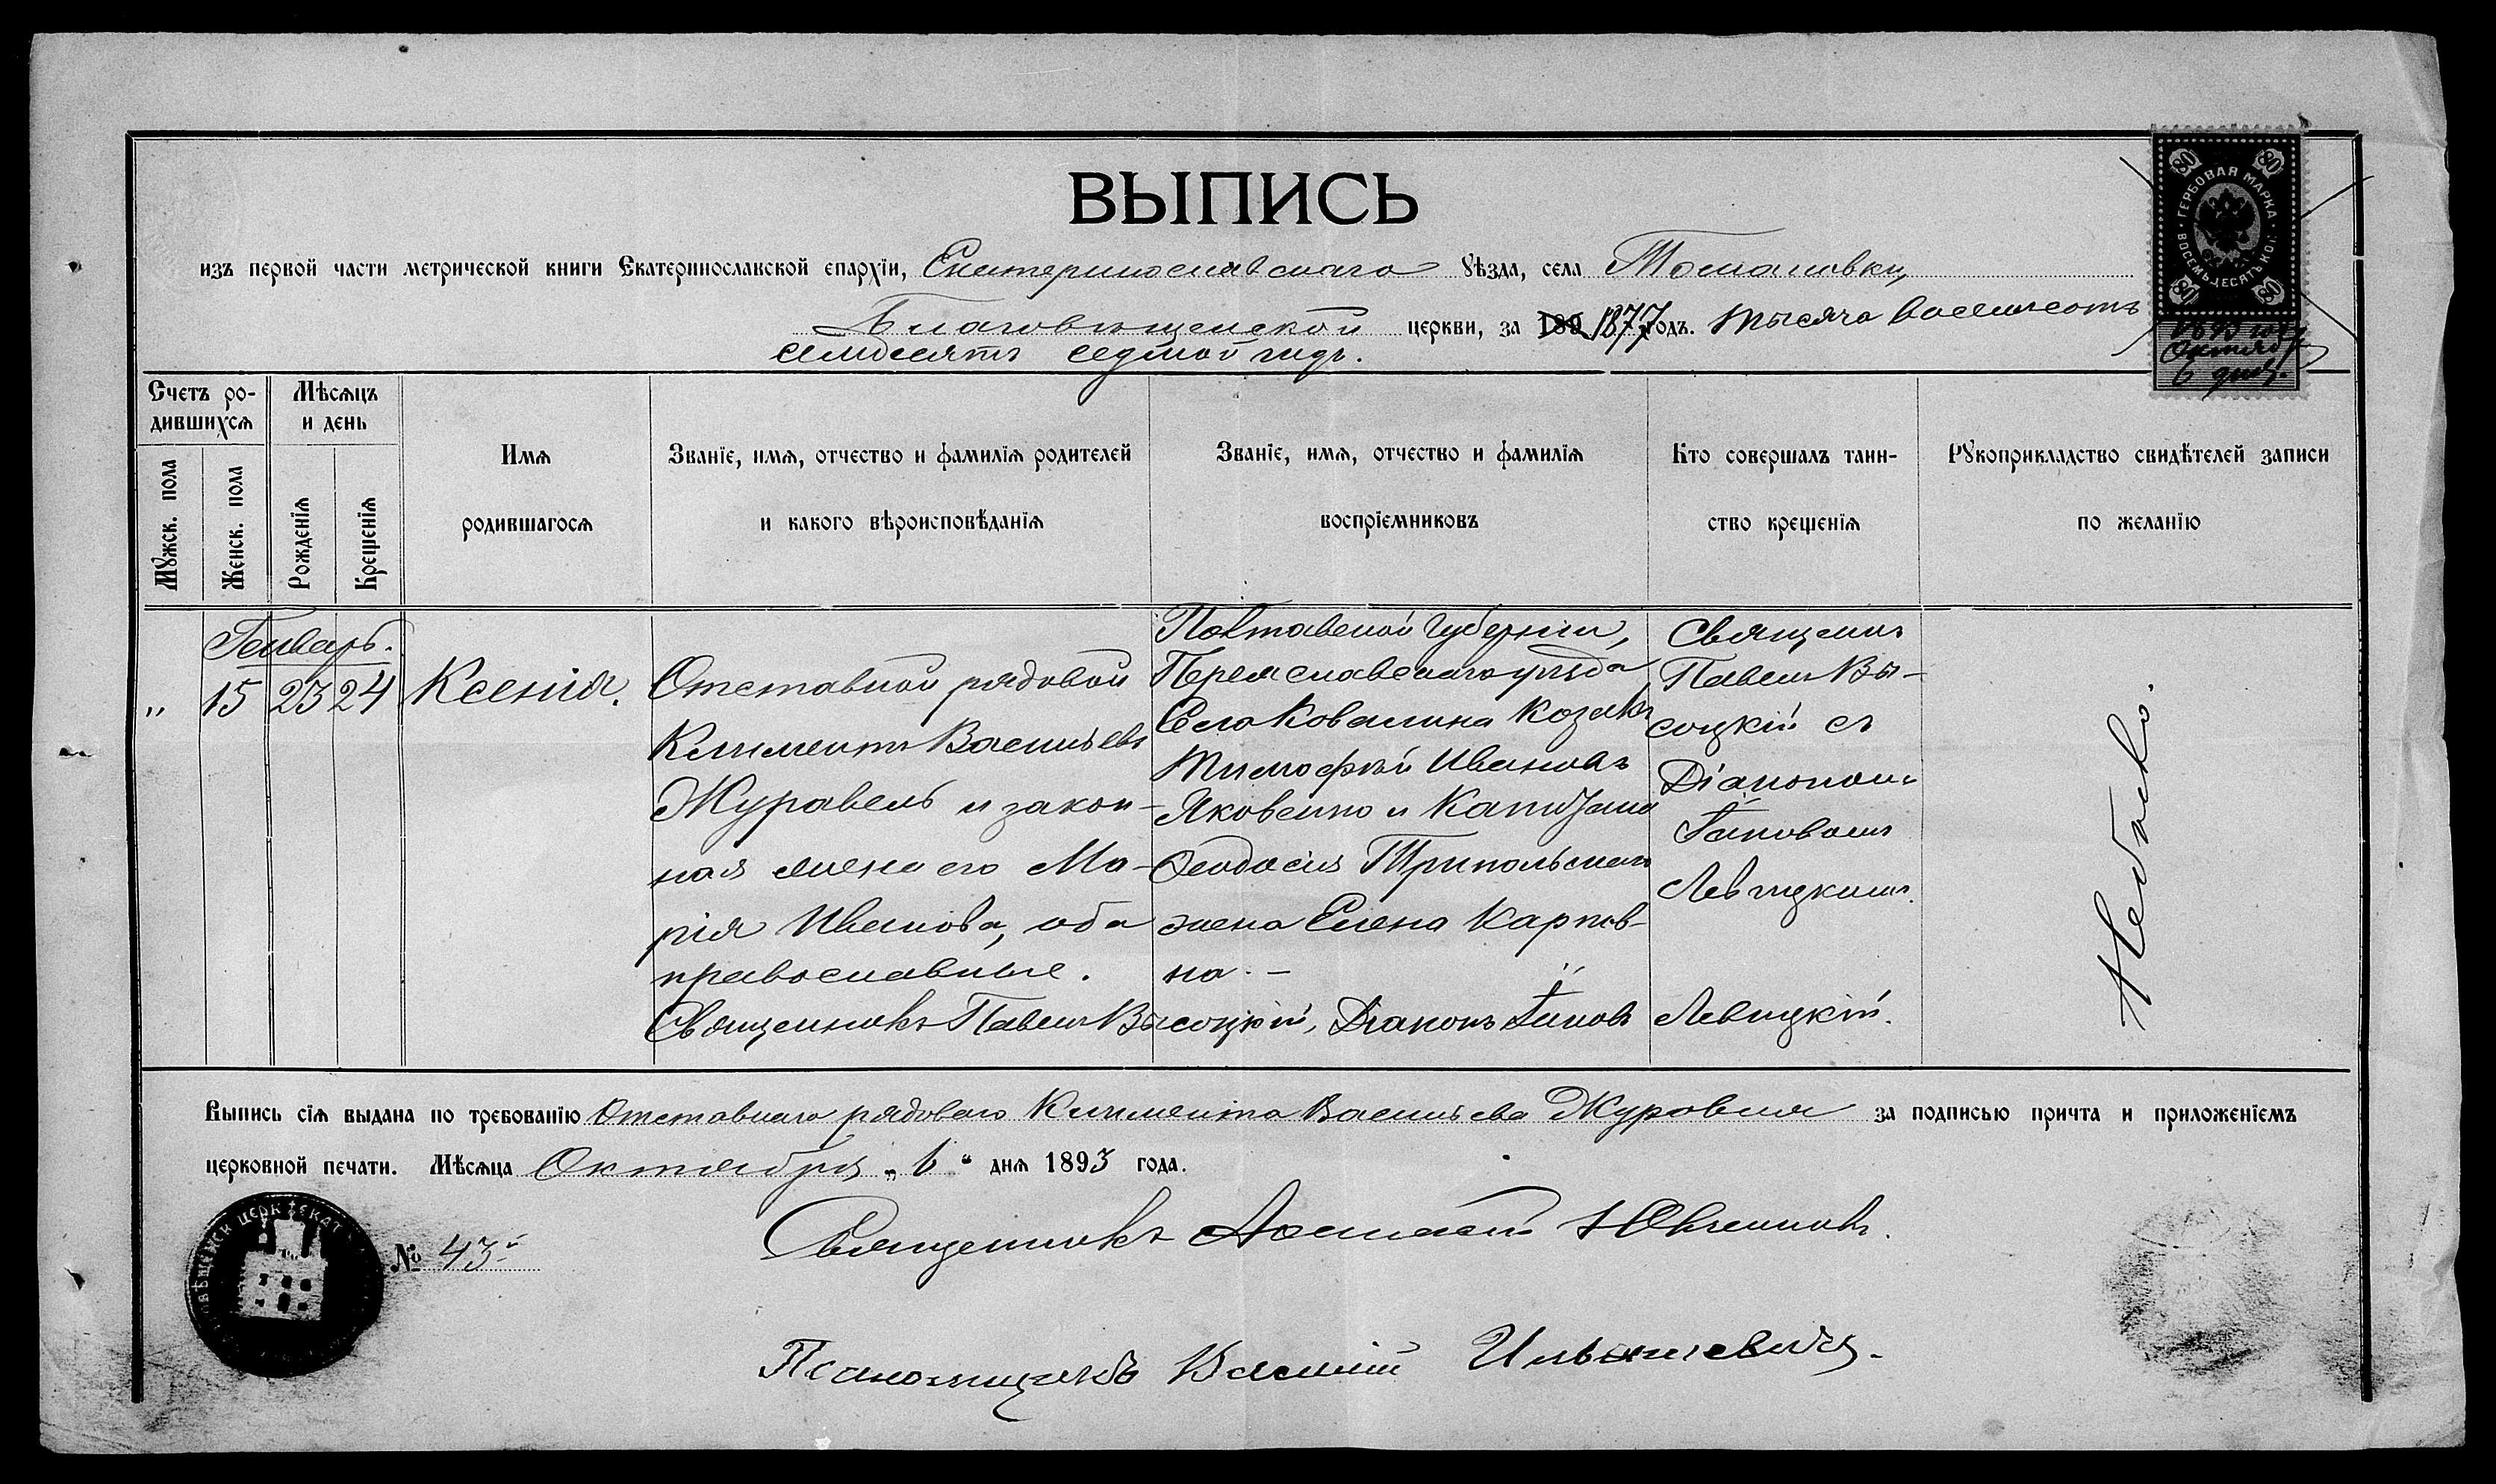 ВЫПИСЬ
изъ первой части метрической книги Екатеринославской епархіи, Екатеринославскаго Уѣзда, села Томаковки,
Благовѣщенской церкви, за 189 1877 годъ. Тысяча восемьсотъ
семдесятъ седмой годъ.
80 80
ГЕРБОВАЯ МАРКА
ВОСЕМЬДЕСЯТЪ КОП.
80 80
1893 года
Октября
6 дня.
Счетъ ро-
дившихся
Мужск. пола
Женск. пола
Мѣсяцъ
и день
Рожденія
Крещенія
Имя
родившагося
Званіе, имя, отчество и фамилія родителей
и какого вѣроисповѣданія
Званіе, имя, отчество и фамилія
воспріемниковъ
Кто совершалъ таин-
ство крещенія
Рукоприкладство свидѣтелей записи
по желанію
Генварь.
" 15 23 24
Ксенія.
Отставной рядовой
Климентъ Васильевъ
Журавель и закон-
ная жена его Ма-
рія Иванова, оба
православные.
Полтавской губерніи,
Переяславскаго уѣзда
Села Ковалина козакъ
Тимофѣй Ивановъ
Яковенко и
Ѳеодосія Трипольскаго
жена Елена Карпов-
на. –
Священникъ
Павелъ Вы-
соцкій съ
Діакономъ
Іаковомъ
Левицкимъ.
Небыло.
Священникъ Павелъ Высоцкій, Діаконъ Іаковъ Левицкій.
Выпись сія выдана по требованію Отставнаго рядоваго Климента Васильева Журавля за подписью причта и приложеніемъ
церковной печати. Мѣсяца Октября „6" дня 1893 года.
№ 43
Священникъ
Псаломщикъ Василій